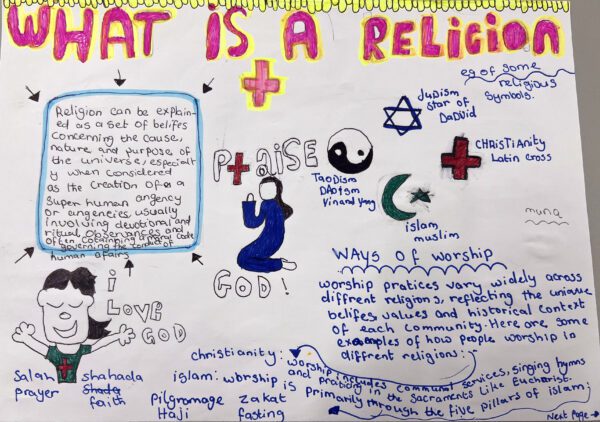 WHAT IS A RELIGION
eg of some
religious
symbols.
Religion can be explain-
ed as a set of belifes
concerning the cause,
nature and purpose of
the universe, especialt
y when considered
as the creation of a
super human angency
or angencies, usually
involving devotional and
ritual observances and
often containing a moral code
governing the conduct of
human afairs
PRAISE
GOD!
JuDism
Star of
DaDviD
CHRISTIANITY
Latin cross
TaoDism
DAOism
Yin and Yang
islam
muslim
muna
i
LOVE
GOD
WAYS OF worship
worship pratices vary widely across
diffrent religions, reflecting the unique
belifes, values and historical context
of each community. Here are some
examples of how people worship in
diffrent religion:-
christianity: worship includes communal services, singing hymns
and praticing in the Sacraments like Eucharist.
islam: worship is Primarily through the five pillars of islam:
Salah shahada
prayer faith
Pilgromage zakat
Hajj fasting
Next Page